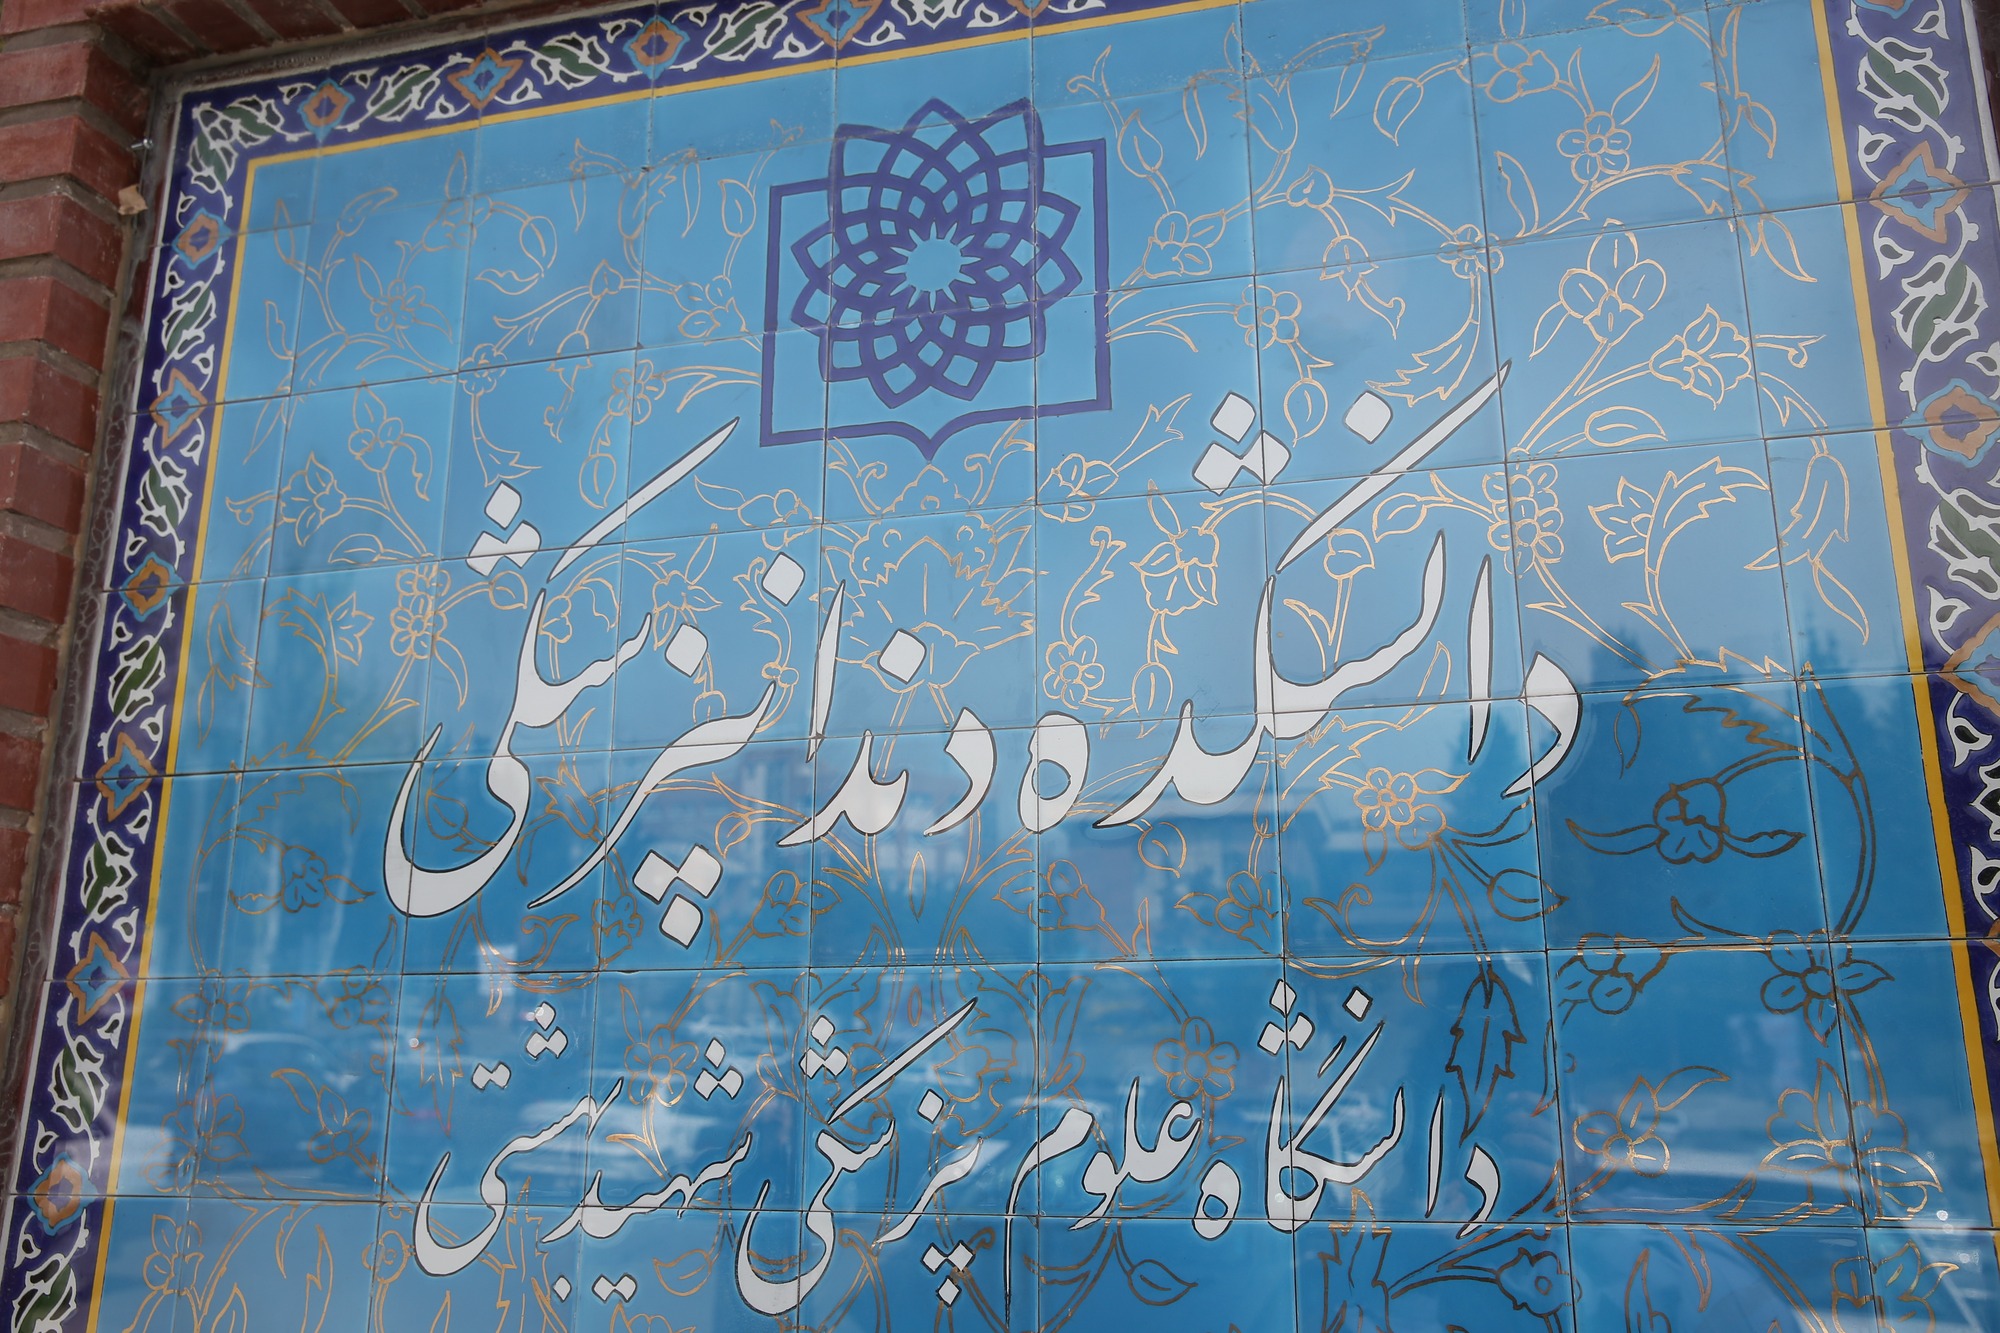 دانشکده دندانپزشکی
دانشگاه علوم پزشکی شهید بهشتی